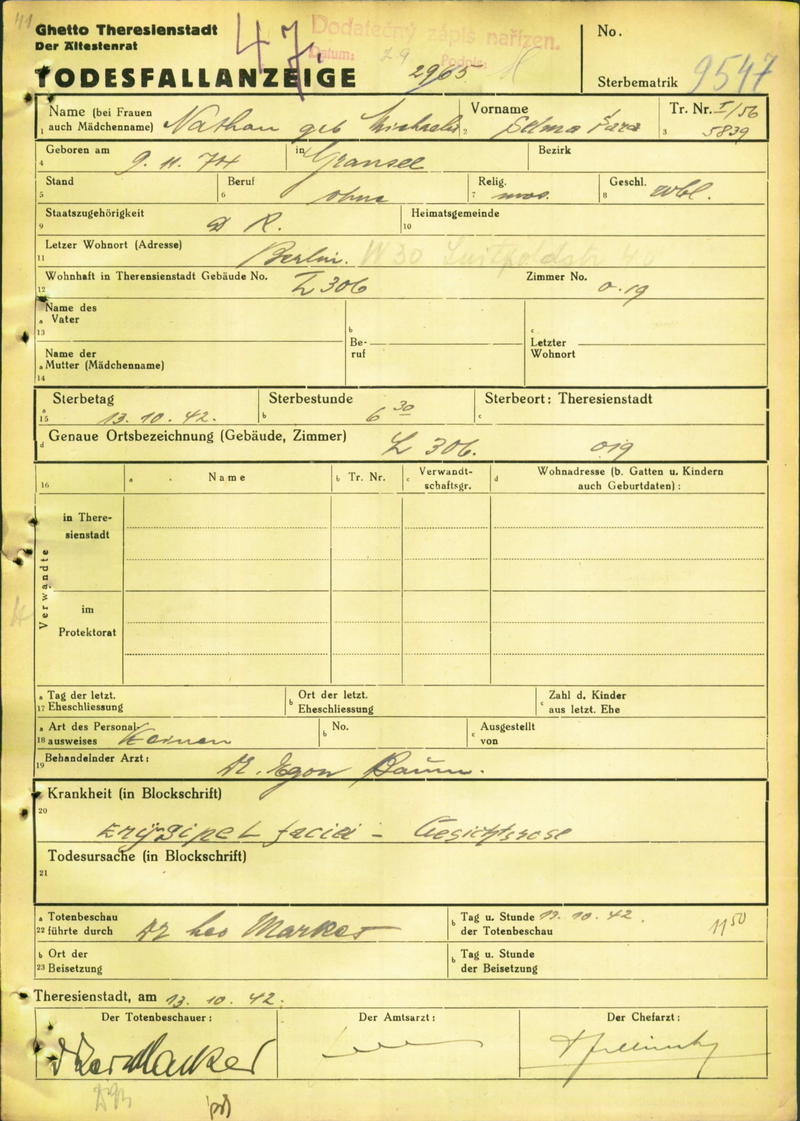 41
Ghetto Theresienstadt
Der Ältestenrat
TODESFALLANZEIGE
47
Dodatečný zápis nařízen.
Datum: 29 Podpis:
2965
No.
Sterbematrik 9547
Name (bei Frauen
1 auch Mädchenname) Nathan geb Michaelis
Vorname
2 Selma Sara
Tr. Nr. I/56
3 5839
Geboren am
4 9. 11. 74
in Gransee
Bezirk
Stand
5
Beruf
6 ohne
Relig.
7 mos.
Geschl.
8 wbl.
Staatszugehörigkeit
9 D R.
Heimatsgemeinde
10
Letzer Wohnort (Adresse)
11 Berlin. W 30 Luitpoldstr. 40
Wohnhaft in Therensienstadt Gebäude No.
12 L 306
Zimmer No.
019
Name des
a Vater
13
Name der
a Mutter (Mädchenname)
14
b
Be-
ruf
c
Letzter
Wohnort
Sterbetag
a
15 13. 10. 42.
Sterbestunde
b 6 30
Sterbeort: Theresienstadt
c
Genaue Ortsbezeichnung (Gebäude, Zimmer)
d L 306. 019
16
a Name
b Tr. Nr.
c Verwandt-
schaftsgr.
d Wohnadresse (b. Gatten u. Kindern
auch Geburtdaten) :
Verwandte
in There-
sienstadt
im
Protektorat
a Tag der letzt.
17 Eheschliessung
b Ort der letzt.
Eheschliessung
c Zahl d. Kinder
aus letzt. Ehe
a Art des Personal-
18 ausweises Keinen
b No.
c Ausgestellt
von
Behandelnder Arzt:
19 Dr. Egon Baum.
Krankheit (in Blockschrift)
20
Erysipel faciei - Gesichtsrose
Todesursache (in Blockschrift)
21
a Totenbeschau
22 führte durch Dr Leo Markus
b Tag u. Stunde 13. 10. 42.
der Totenbeschau 11 50
b Ort der
23 Beisetzung
b Tag u. Stunde
der Beisetzung
Theresienstadt, am 13. 10. 42.
Der Totenbeschauer:
Der Amtsarzt:
Der Chefarzt: